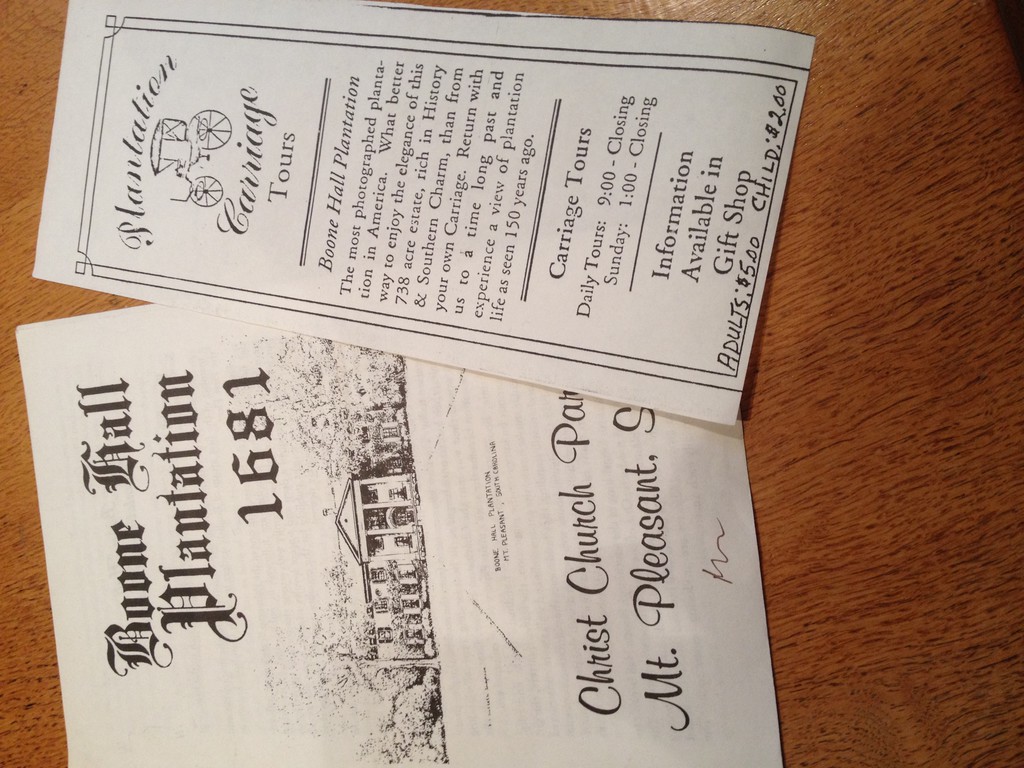 Plantation
Carriage
Tours
Boone Hall Plantation
The most photographed planta-
tion in America. What better
way to enjoy the elegance of this
738 acre estate, rich in History
& Southern Charm, than from
your own Carriage. Return with
us to a time long past and
experience a view of plantation
life as seen 150 years ago.
Carriage Tours
Daily Tours: 9:00 - Closing
Sunday: 1:00 - Closing
Information
Available in
Gift Shop
ADULTS: $5.00 CHILD: $2.00
Boone Hall
Plantation
1681
BOONE HALL PLANTATION
MT. PLEASANT, SOUTH CAROLINA
Christ Church Par
Mt. Pleasant, S